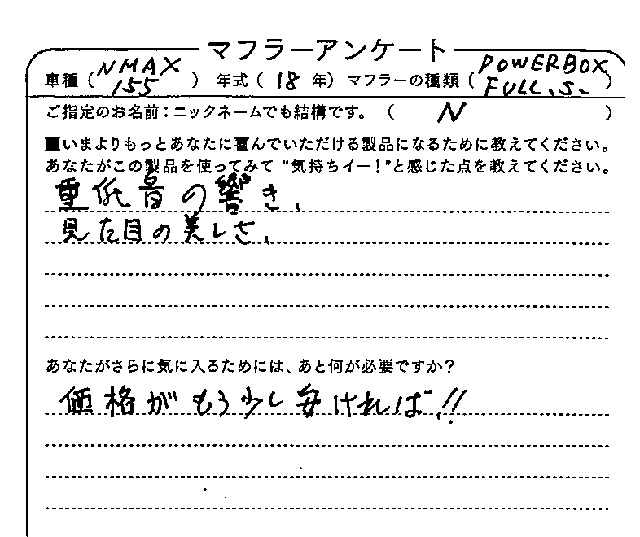 マフラーアンケート
車種 ( NMAX 155 ) 年式 ( 18 年) マフラーの種類 ( POWERBOX FULL.S. )
ご指定のお名前:ニックネームでも結構です。 ( N )
■いまよりもっとあなたに喜んでいただける製品になるために教えてください。
あなたがこの製品を使ってみて "気持ちイー!"と感じた点を教えてください。
重低音の響き、
見た目の美しさ、
あなたがさらに気に入るためには、あと何が必要ですか?
価格がもう少し安ければ!!